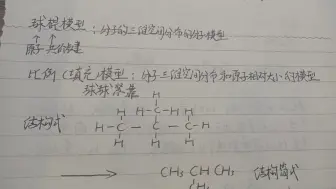 球棍模型：分子的三维空间分布的分子模型
↑ ↑
原子 共价键
比例(填充)模型：分子三维空间分布和原子相对大小的模型
球球紧靠
H
H-C-H
H H
结构式 H-C-C-C-H
H H H
CH₃ CH CH₃ 结构简式